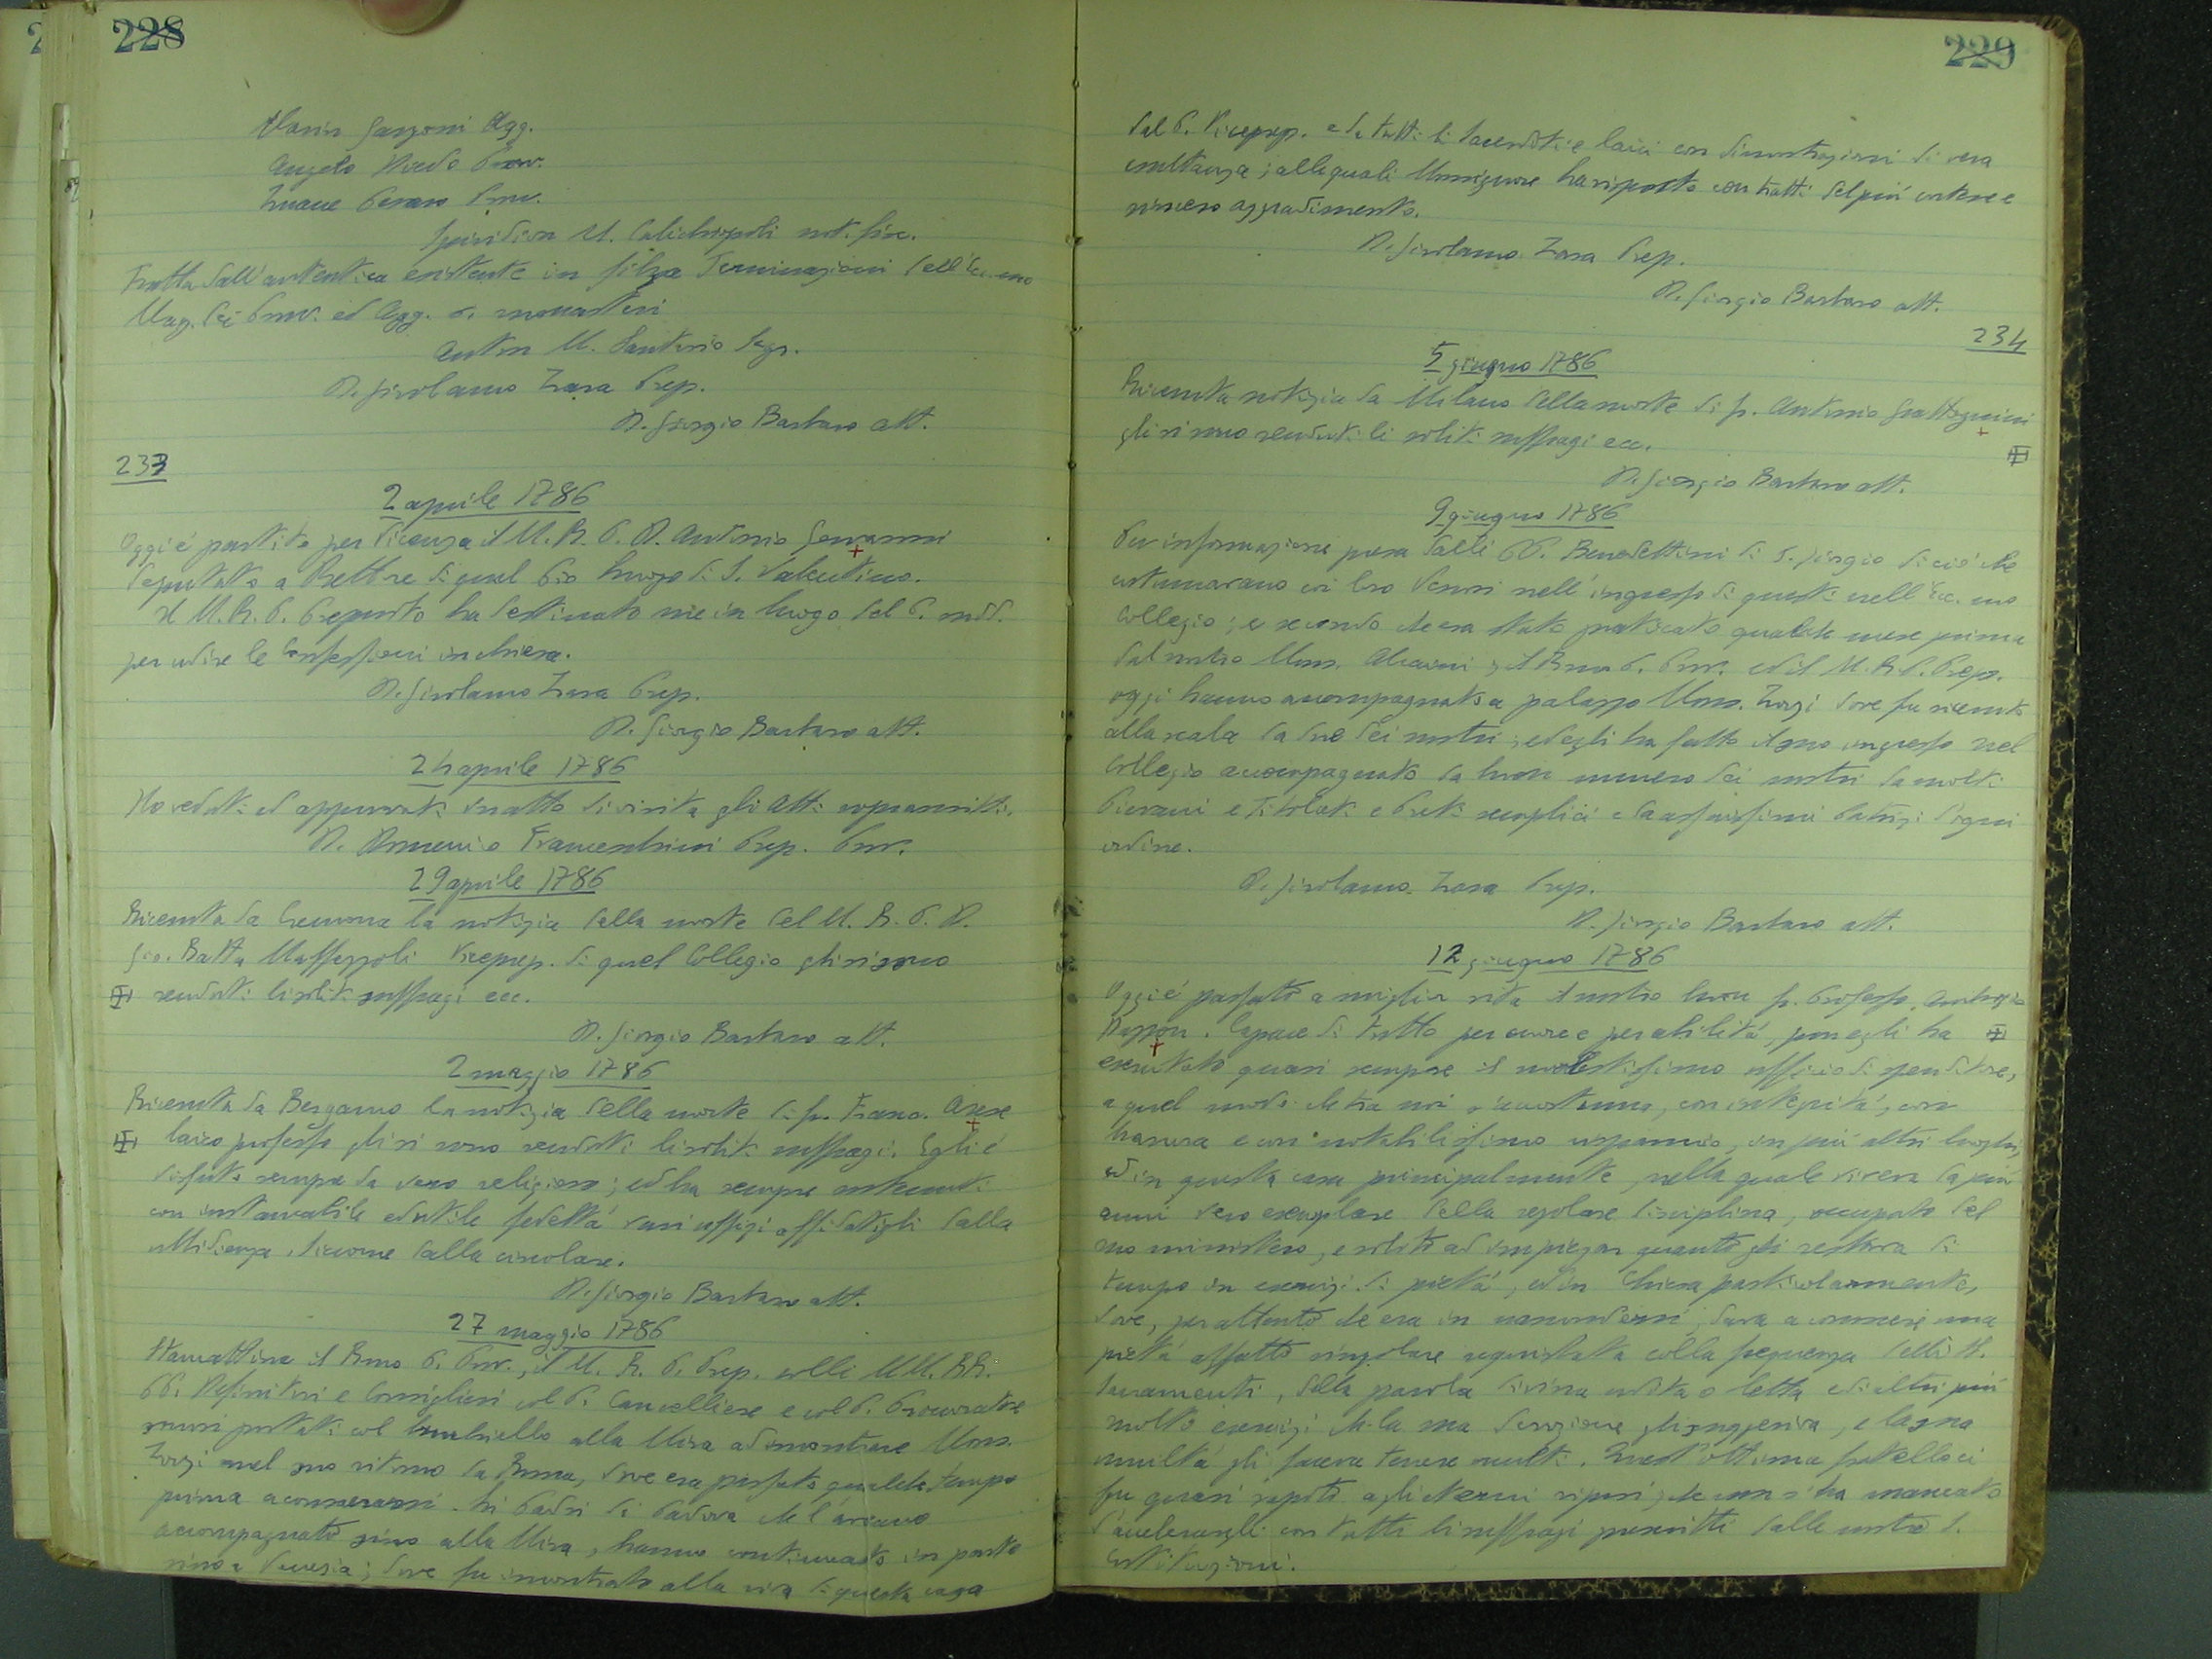 228
Marin Garzoni Agg.
Angelo Diedo Prov.
Zuane Pesaro Prov.
Spiridion M. Calichiopoli not. fisc.
Tratta dall'autentica esistente in filza Terminazioni dell'Ecc.mo
Mag. dei Prov. ed Agg. s. monasteri
Anton M. Santorio Segr.
D. Girolamo Zara Prep.
D. Giorgio Barbaro att.
233
2 aprile 1786
Oggi è partito per Vicenza il M. R. P. D. Antonio
deputato a Rettore di quel Pio luogo di S. Valentino.
Il M. R. P. Preposito ha destinato me in luogo del P. sudd.
per udire le Confessioni in chiesa.
D. Girolamo Zara Prep.
D. Giorgio Barbaro att.
24 aprile 1786
Ho veduti ed approvati in atto di visita gli Atti soprascritti.
D. Domenico Framentini Prep. Prov.
29 aprile 1786
Ricevuta da Cremona la notizia della morte del M. R. P. D.
Gio. Batta Massazzoli Viceprep. di quel Collegio gli si sono
renduti li soliti suffragi ecc.
D. Giorgio Barbaro att.
2 maggio 1786
Ricevuta da Bergamo la notizia della morte di fr. Franc. Arese
laico professo gli si sono renduti li soliti suffragi. Egli è
vissuto sempre da vero religioso; ed ha sempre sostenuti
con instancabile ed utile fedeltà vari uffizi affidatigli dalla
ubbidienza, siccome dalla circolare.
D. Giorgio Barbaro att.
27 maggio 1786
Stamattina il Rmo P. Prov., il M. R. P. Prep. colli MM. RR.
PP. Definitori e Consiglieri col P. Cancelliere e col P. Procuratore
sonosi portati col burchiello alla Mira ad incontrare Mons.
Zorzi nel suo ritorno da Roma, dove era passato qualche tempo
prima a consacrarsi. Li Padri di Padova che l'aveano
accompagnato sino alla Mira, hanno continuato in parte
sino a Venezia; dove fu incontrato alla riva di questa casa
229
dal P. Viceprep. e da tutti li Sacerdoti e laici con dimostrazioni di vera
esultanza; alle quali Monsignore ha risposto con tratti del più cortese e
sincero aggradimento.
D. Girolamo Zara Prep.
D. Giorgio Barbaro att.
234
5 giugno 1786
Ricevuta notizia da Milano della morte di fr. Antonio Grattognini
gli si sono renduti li soliti suffragi ecc.
D. Giorgio Barbaro att.
9 giugno 1786
Per informazione presa dalli PP. Benedettini di S. Giorgio di ciò che
costumavano coi loro Vescovi nell'ingresso di questi nell'Ecc.mo
Collegio; e secondo che era stato praticato qualche mese prima
dal nostro Mons. Alcaini; il Rmo P. Prov. ed il M. R. P. Prep.
oggi hanno accompagnato a palazzo Mons. Zorzi dove fu ricevuto
alla scala da due dei nostri; ed egli ha fatto il suo ingresso nel
Collegio accompagnato da buon numero dei nostri da molti
Pievani e Titolati e Preti semplici e da assaissimi Patrizi d'ogni
ordine.
D. Girolamo Zara Prep.
D. Giorgio Barbaro att.
12 giugno 1786
Oggi è passato a miglior vita il nostro buon fr. Professo Ambrogio
Capace di tutto per cuore e per abilità, pure egli ha
esercitato quasi sempre il molestissimo ufficio di spenditore,
a quel modo che tra noi s'accostuma, con integrità, con
bravura e con notabilissimo risparmio, in più altri luoghi,
ed in questa casa principalmente, nella quale viveva da più
anni vero esemplare della regolare disciplina, occupato del
suo ministero, e solito ad impiegar quanto gli restava di
tempo in esercizi di pietà, ed in Chiesa particolarmente,
dove, per attento che era in nascondersi, dava a conoscere una
pietà affatto singolare acquistata colla frequenza delli SS.
Sacramenti, della parola divina udita o letta e di altri più
molti esercizi che la sua devozione gli suggeriva, e la sua
umiltà gli faceva tenere occulti. Quest'ottimo fratello ci
fu quasi rapito agli eterni riposi; che non si ha mancato
d'accelerargli con tutti li suffragi prescritti dalle nostre S.
Costituzioni.